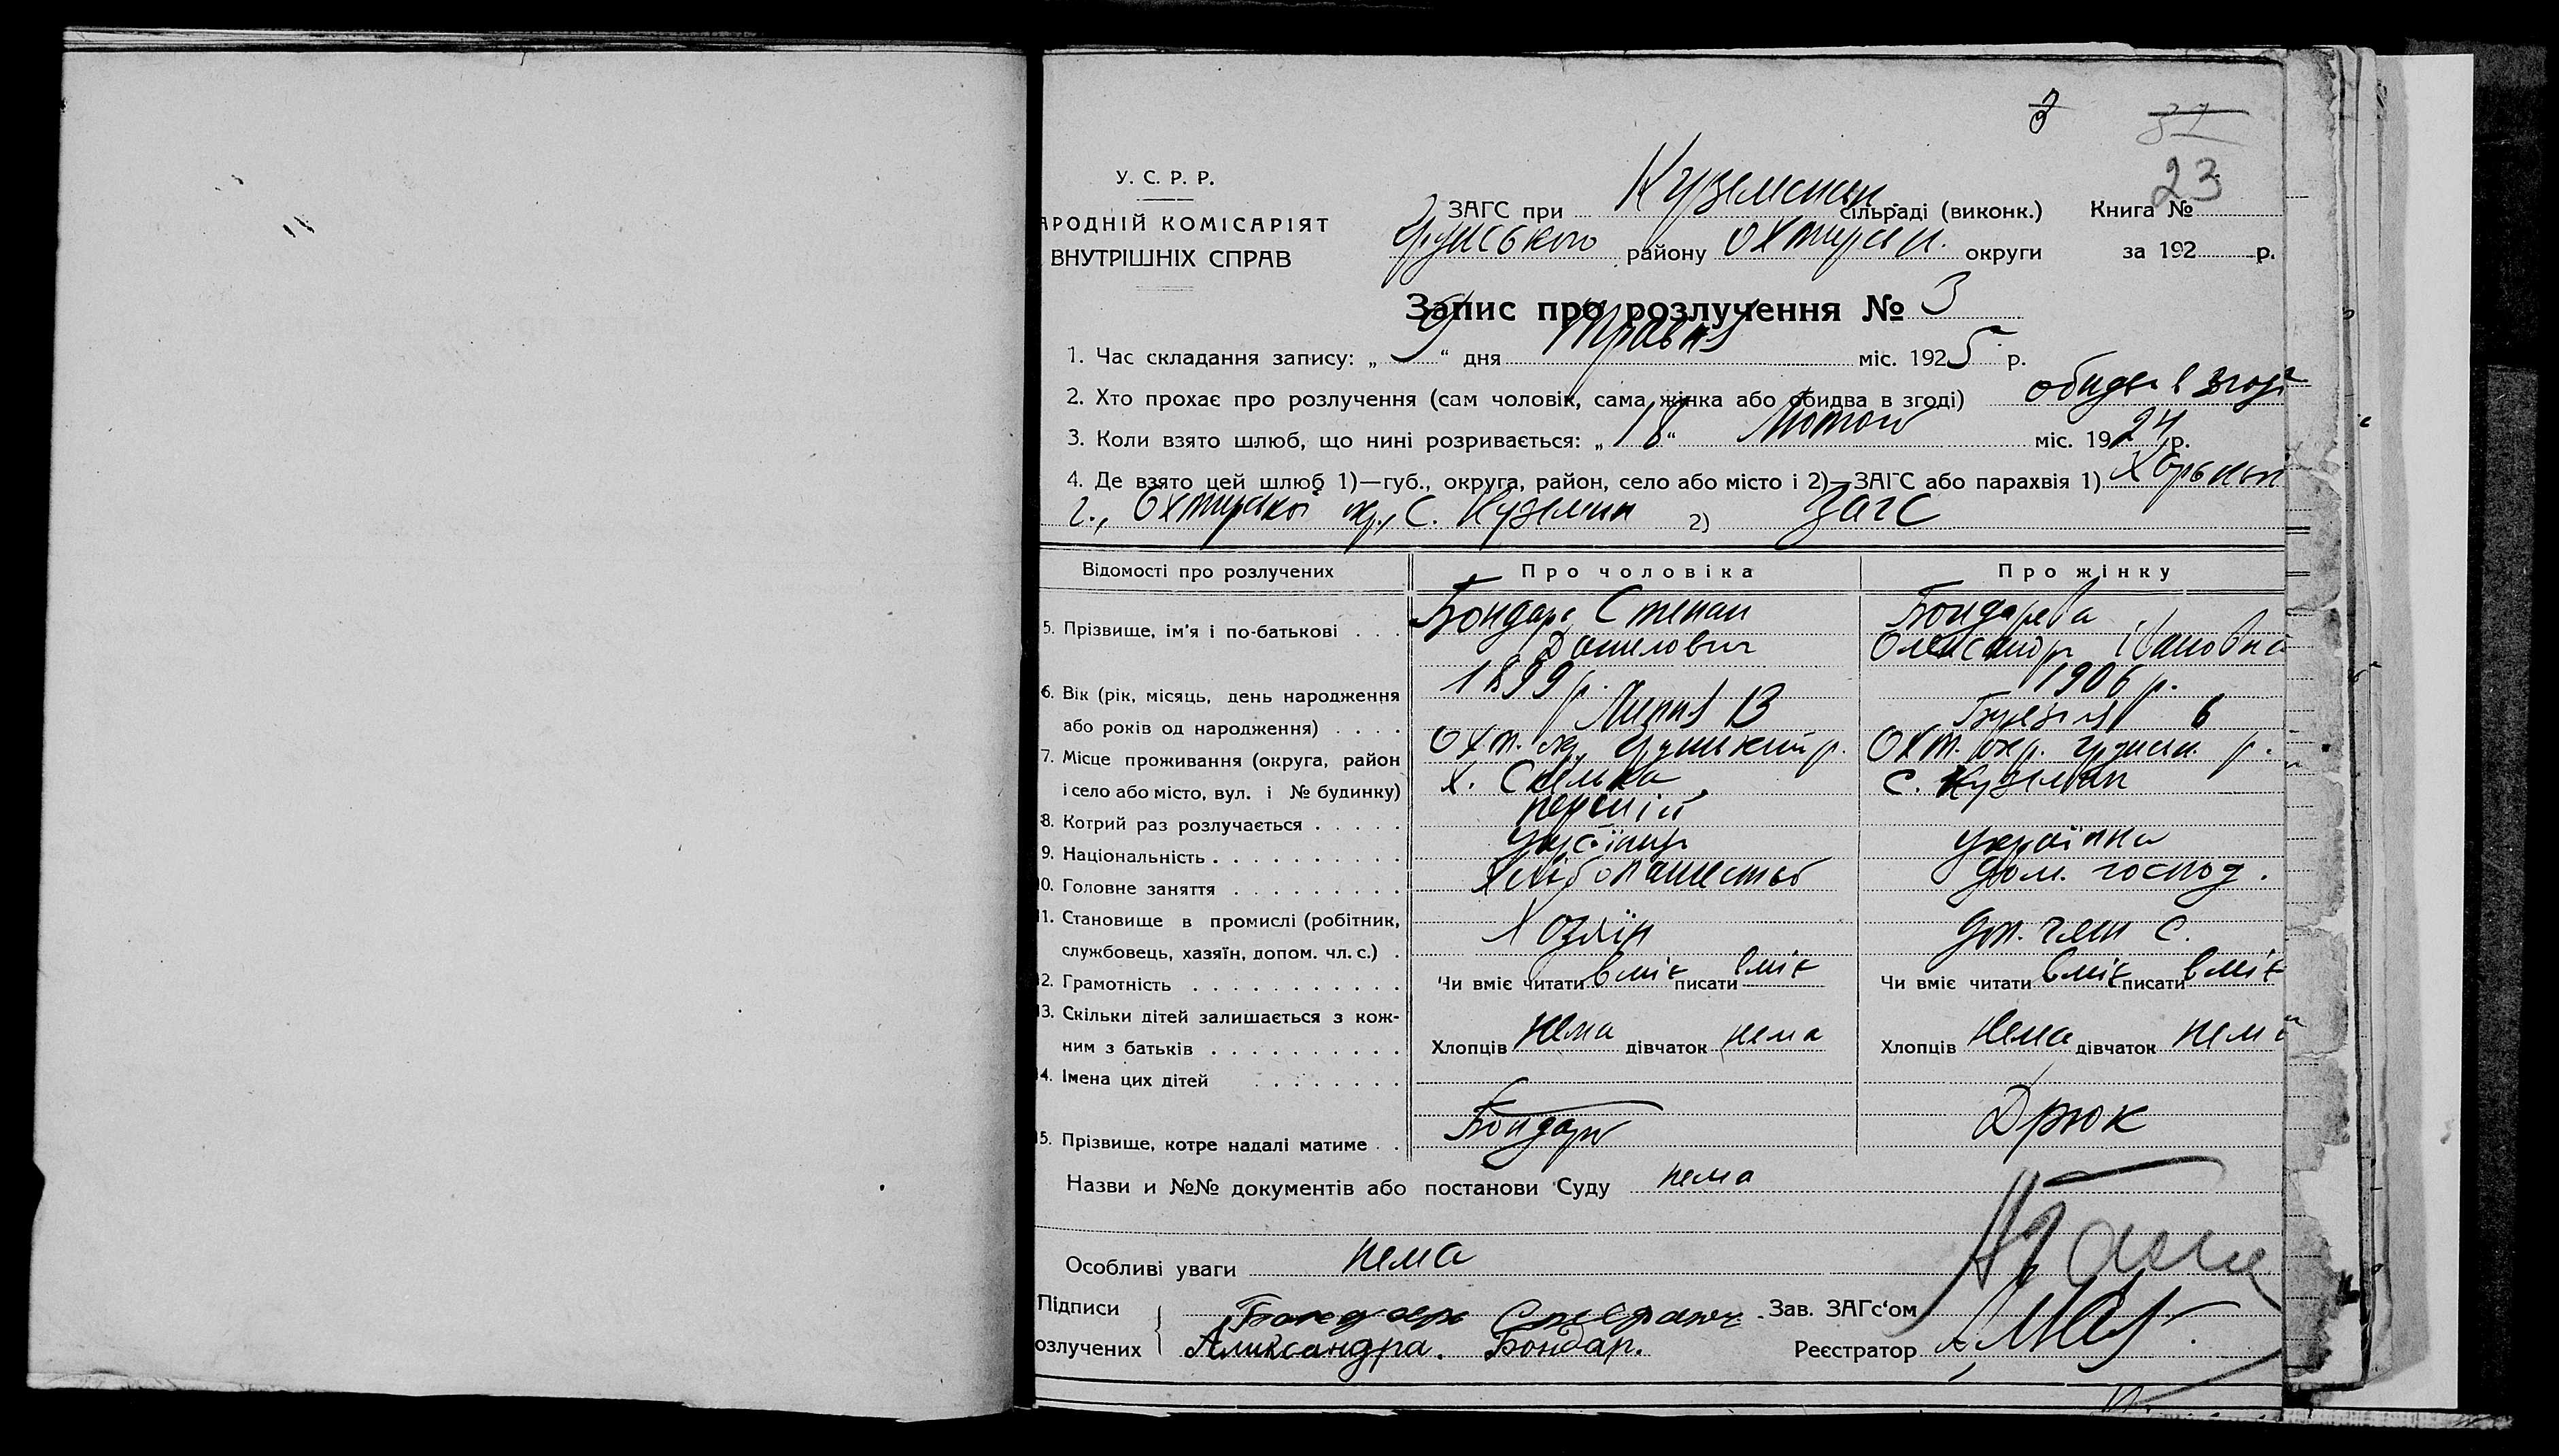 3
37
23
У. С. Р. Р.
АРОДНІЙ КОМІСАРІЯТ
ВНУТРІШНІХ СПРАВ
ЗАГС при Куземськ. сільраді (виконк.) Книга №
Грунського району Охтирськ. округи за 192 р.
Запис про розлучення № 3
1. Час складання запису: „ 9 “ дня Травня міс. 1925 р.
2. Хто прохає про розлучення (сам чоловік, сама жінка або обидва в згоді) обидва в згоді
3. Коли взято шлюб, що нині розривається: „ 18 “ Лютого міс. 1924 р.
4. Де взято цей шлюб 1)—губ., округа, район, село або місто і 2)—ЗАГС або парахвія 1) Харьк
г., Охтирської окр., С. Куземин 2) Загс
Відомості про розлучених Про чоловіка Про жінку
5. Прізвище, ім'я і по-батькові . . . Бондарь Степан Данилович
Бондарева Олександр Івановна
6. Вік (рік, місяць, день народження або років од народження) . . . . 1899 р. Липня 13
1906 р. Березіля 6
7. Місце проживання (округа, район і село або місто, вул. і № будинку) Охт. окр, Грунський р. х. Скелька
Охт. окр. Грунськ. р. с. Куземин
8. Котрий раз розлучається . . . . . перший
9. Національність . . . . . . . . . . українць українка
10. Головне заняття . . . . . . . . . Хлібопашество дом. господ.
11. Становище в промислі (робітник, службовець, хазяїн, допом. чл. с.) . Хозяїн доп. член с.
12. Грамотність . . . . . . . . . . . Чи вміє читати вміє писати вміє Чи вміє читати вміє писати вміє
13. Скільки дітей залишається з кож-
ним з батьків . . . . . . . . . . Хлопців нема дівчаток нема Хлопців нема дівчаток нема
14. Імена цих дітей . . . . . . . .
15. Прізвище, котре надалі матиме . . Бондарь Дрюк
Назви и №№ документів або постанови Суду нема
Особливі уваги нема
Підписи Бондарь Степан Зав. ЗАГс'ом
озлучених Александра. Бондар. Реєстратор